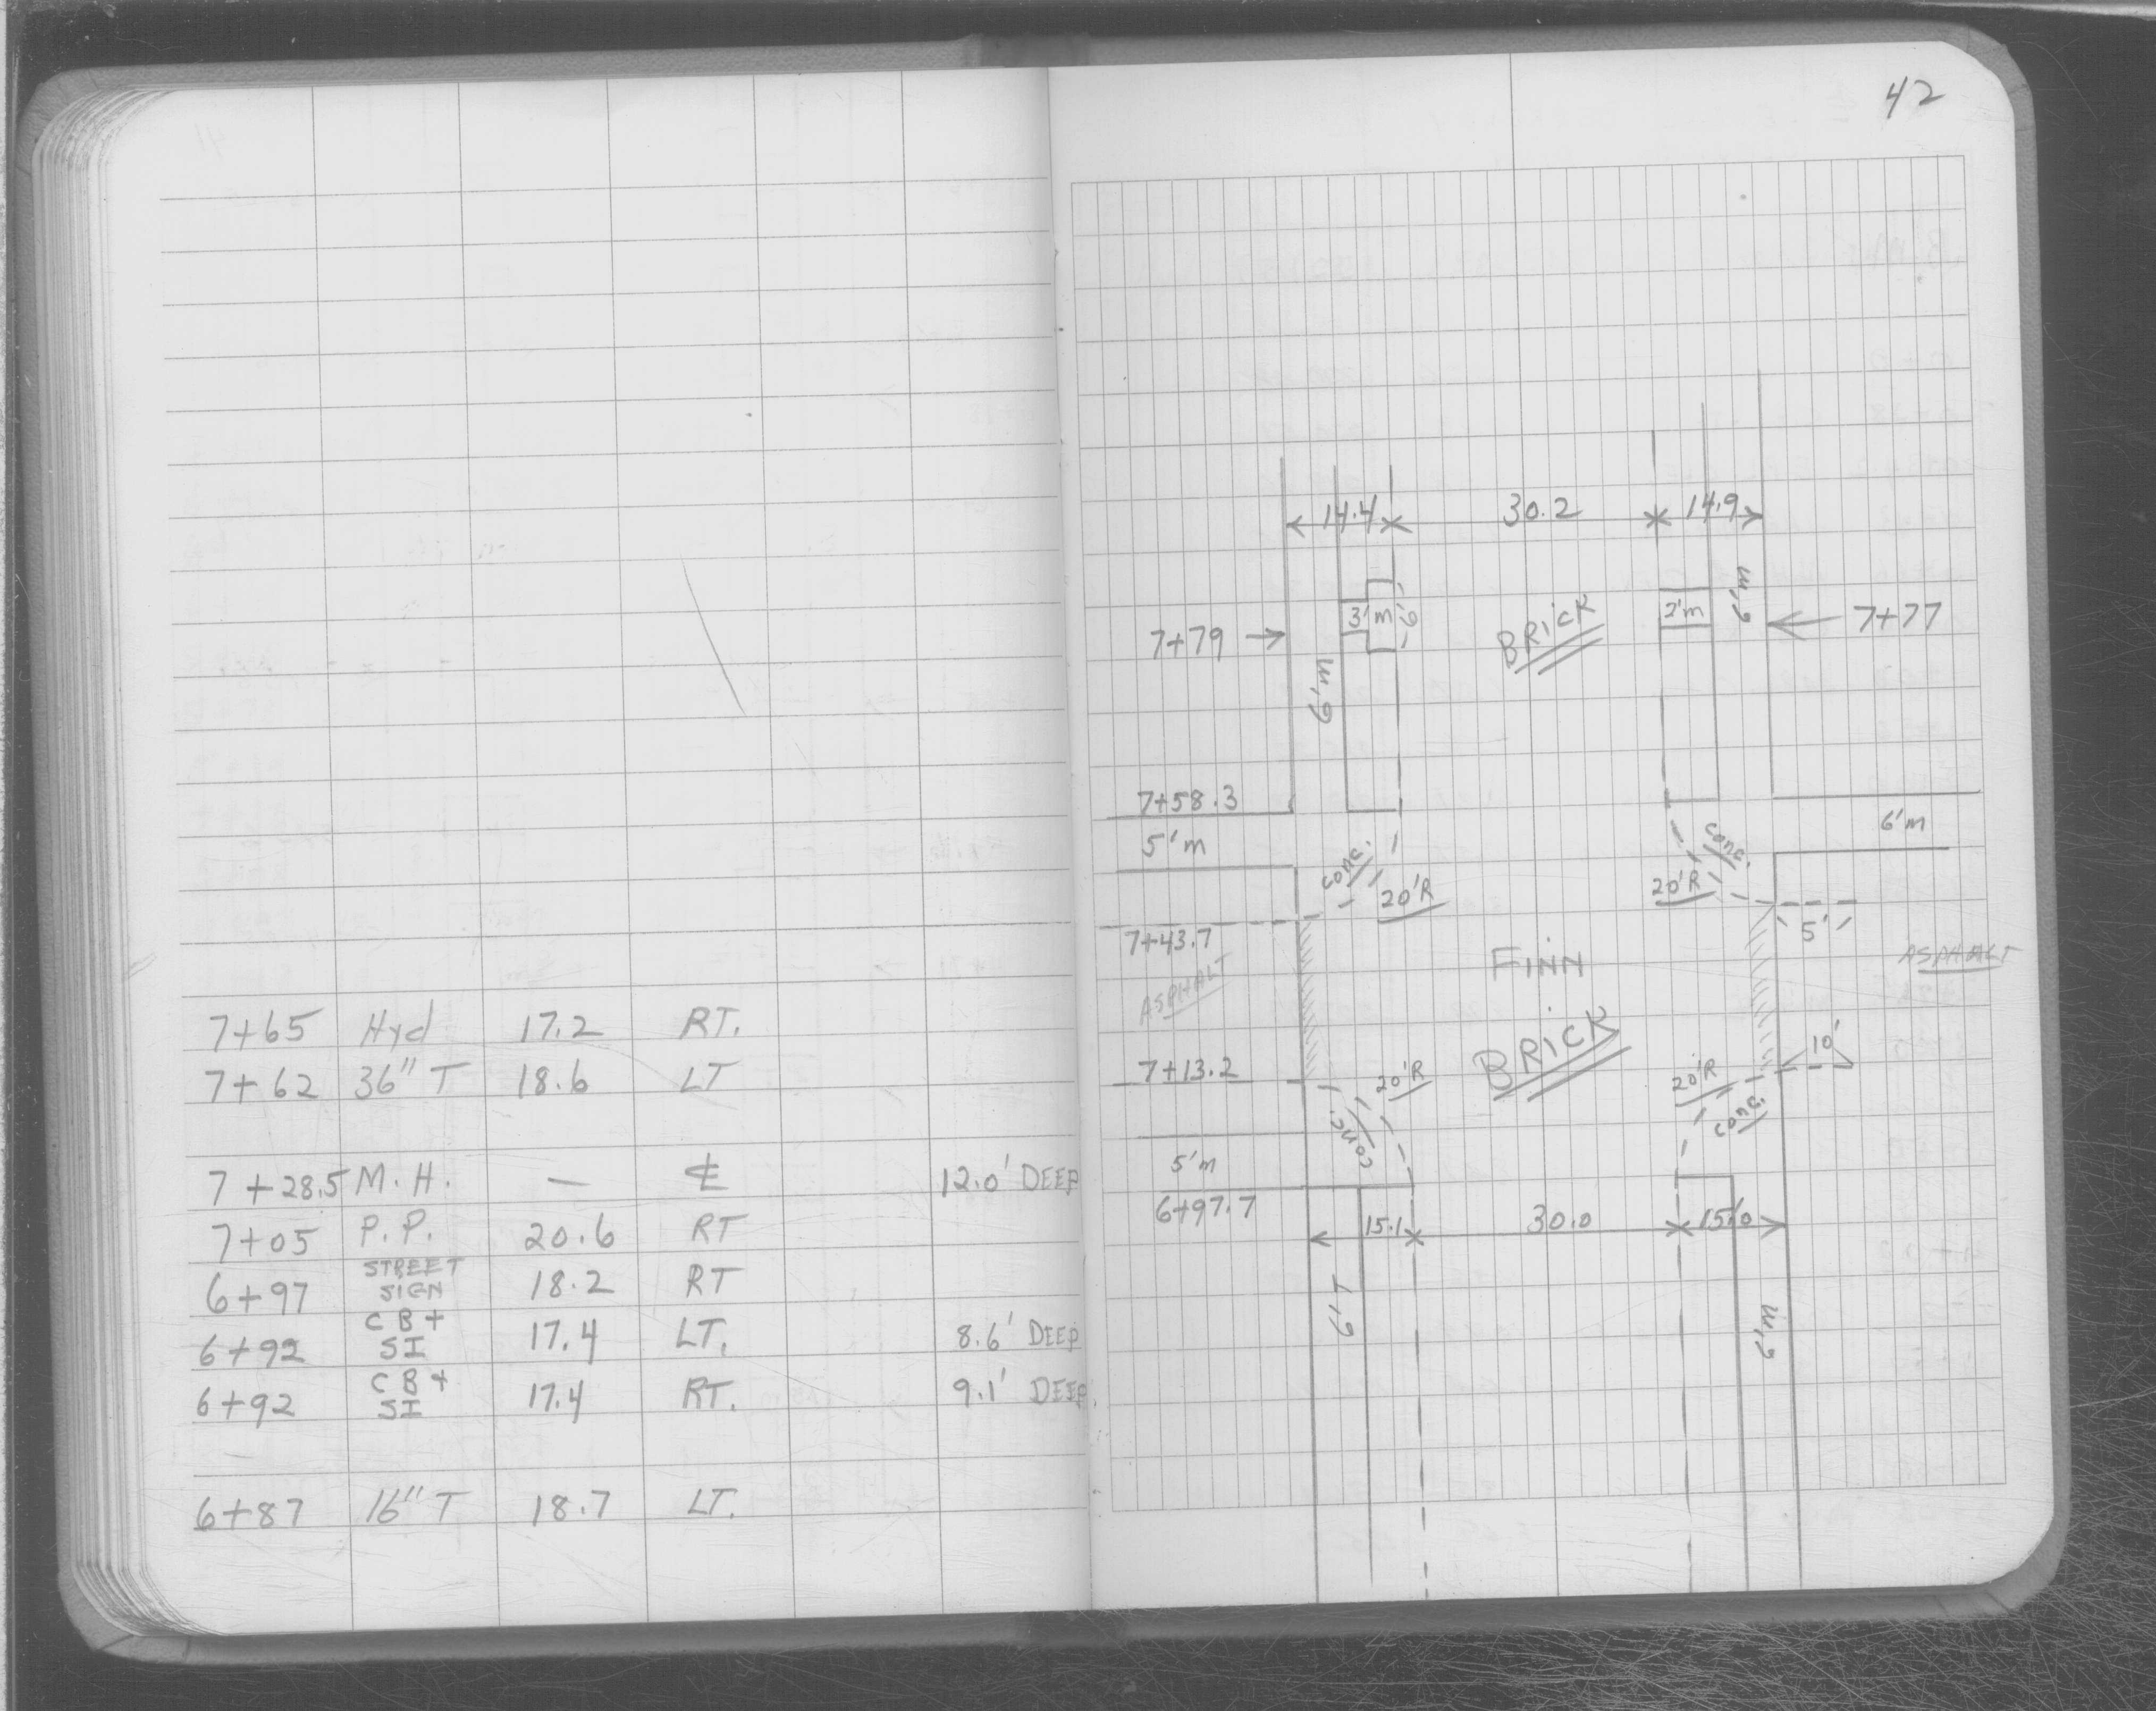 42
7+65 Hyd 17.2 RT.
7+62 36" T 18.6 LT
7+28.5 M.H. — ℄ 12.0' DEEP
7+05 P.P. 20.6 RT
6+97 STREET SIGN 18.2 RT
6+92 CB+ SI 17.4 LT. 8.6' DEEP
6+92 CB+ SI 17.4 RT. 9.1' DEEP.
6+87 16" T 18.7 LT.
14.4 30.2 14.9
7+79 3'm 6' BRICK 2'm 6'm 7+77
6'm
7+58.3
5'm 6'm
conc. 20'R 20'R conc.
7+43.7 5'
ASPHALT FINN ASPHALT
BRICK
7+13.2 20'R 20'R 10'
conc. conc.
5'm
6+97.7
15.1 30.0 15.0
6'm